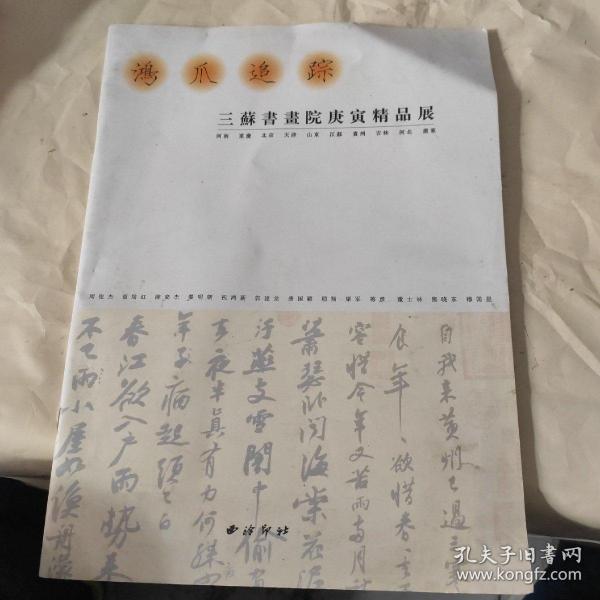 鴻爪追踪
三蘇書畫院庚寅精品展
河南 重慶 北京 天津 山東 江蘇 貴州 吉林 河北 廣東
自我来黄州已過三寒
食年年欲惜春春去不
容惜今年又苦雨兩月秋
蕭瑟卧聞海棠花泥
汙燕支雪闇中偷負
去夜半真有力何殊少
年子病起頭已白
春江欲入户雨勢来
不已雨小屋如漁舟濛
西泠印社
孔夫子旧书网
www.kongfz.com